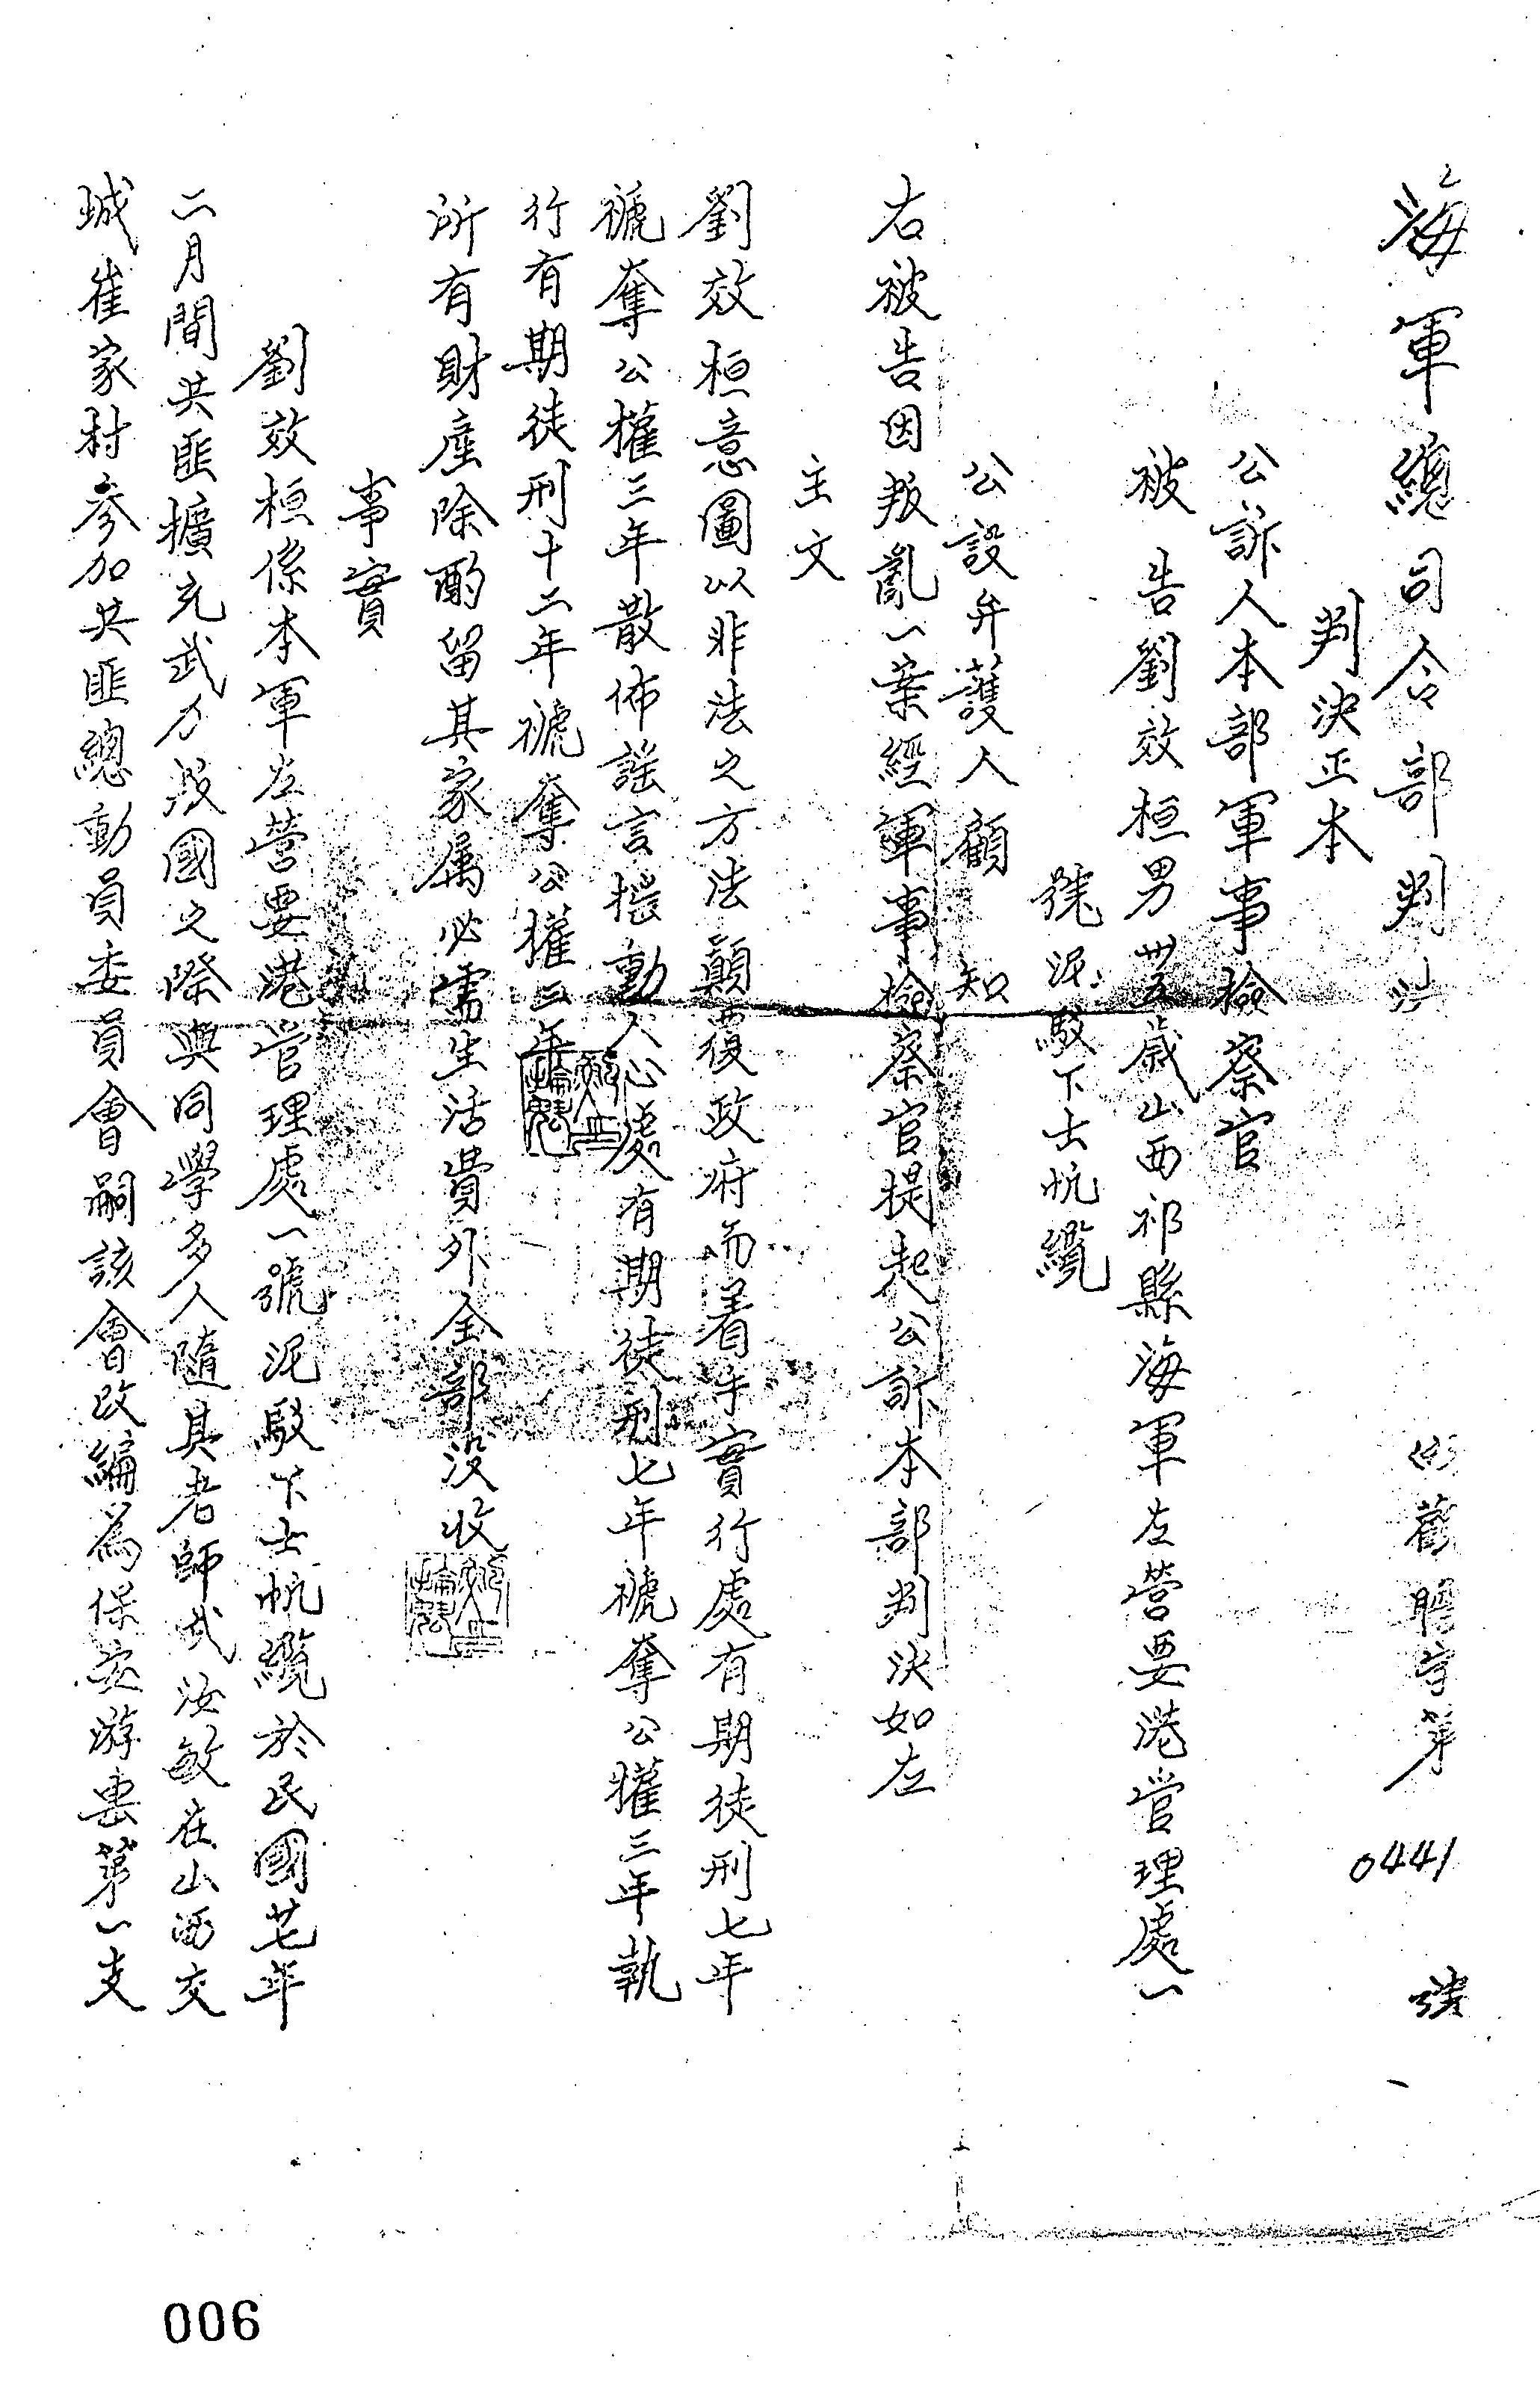 海軍總司令部判決 字第0441號
判決正本
公訴人本部軍事檢察官
被告劉效桓男卅五歲山西祁縣海軍左營要港管理處一
號泥駁下士帆纜
公設弁護人顧 知
右被告因叛亂一案經軍事檢察官提起公訴本部判決如左
主文
劉效桓意圖以非法之方法顛覆政府而着手實行處有期徒刑七年
褫奪公權三年散佈謠言搖動人心處有期徒刑七年褫奪公權三年執
行有期徒刑十二年褫奪公權三年
所有財產除酌留其家属必需生活費外全部沒收
事實
劉效桓係本軍左營要港管理處一號泥駁下士帆纜於民國廿七年
二月間共匪擴充武力叛國之際與同學多人隨其老師武汝敏在山西交
城崔家村參加共匪總動員委員會嗣該會改編為保安游击第一支
006